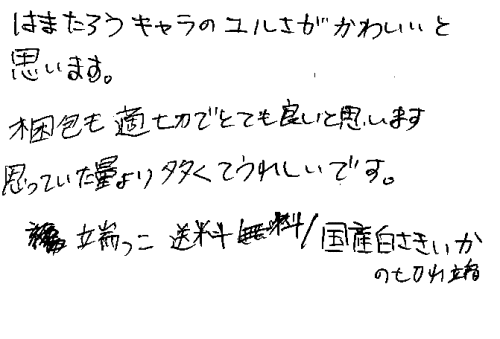 はまたろうキャラのユルさがかわいいと
思います。
梱包も適切でとても良いと思います
思っていた量より多くてうれしいです。
端っこ 送料無料/国産白さきいか
の切れ端